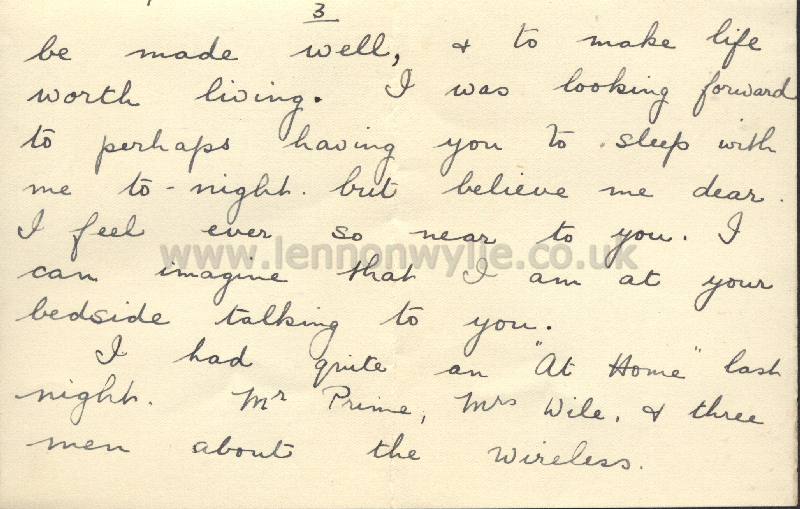 3
be made well, & to make life
worth living. I was looking forward
to perhaps having you to sleep with
me to-night. but believe me dear.
I feel ever so near to you. I
www.lennonwylie.co.uk
can imagine that I am at your
bedside talking to you.
I had quite an "At Home" last
night. Mr Prime, Mrs Wile, & three
men about the wireless.